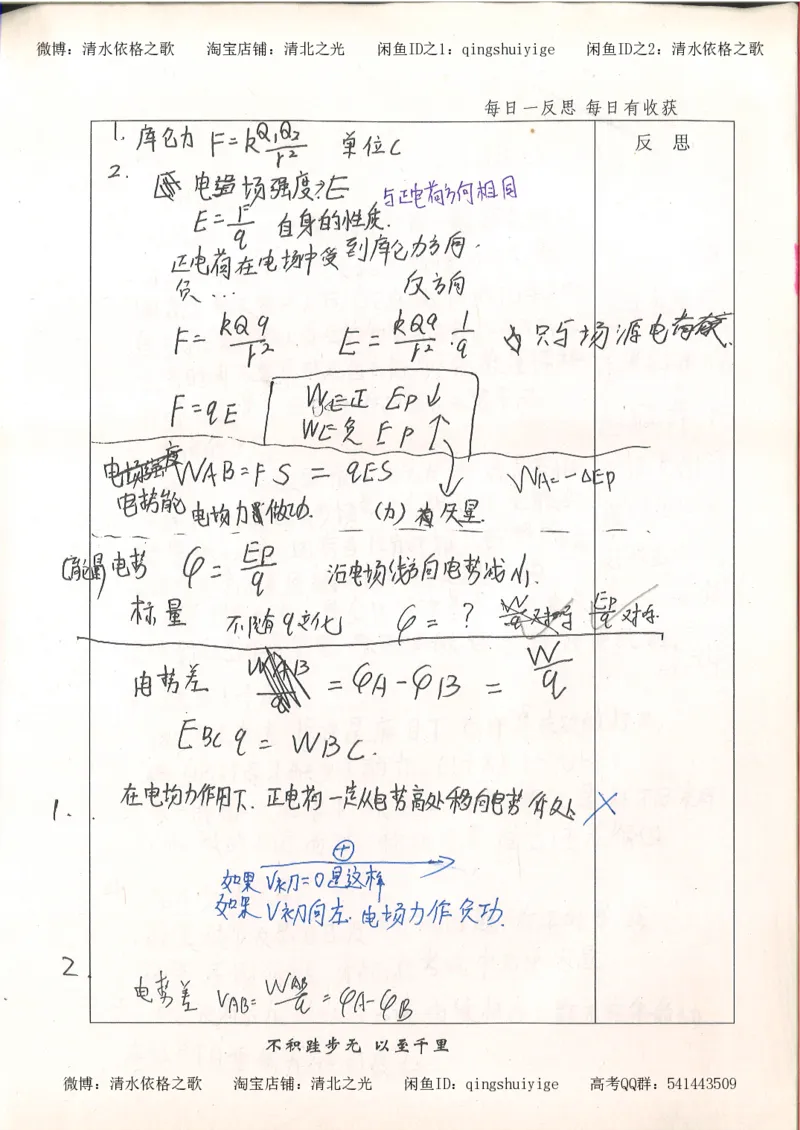 微博：清水依格之歌 淘宝店铺：清北之光 闲鱼ID之1：qingshuiyige 闲鱼ID之2：清水依格之歌
每日一反思 每日有收获
反 思
1. 库仑力 F=k Q₁Q₂/r² 单位C
2. 电场强度：E 与正电荷方向相同
E=F/q 自身的性质.
正电荷在电场中受到库仑力方向.
负... 反方向
F=kQq/r² E=kQq/r²·1/q 只与场源电荷有关.
F=qE
W正 Ep↓
W负 Ep↑
WAB=FS=qES WA=-ΔEp
电势能 电场力做功. (力) 矢量.
(能量)电势 φ=Ep/q 沿电场线方向电势减小.
标量 不随q变化 φ=？ W/q对吗 Ep/q对吗.
电势差 =φA-φB=W/q
EBC q=WBC.
1. 在电场力作用下.正电荷一定从电势高处移向电势低处 ×
⊕
如果V初=0是这样
如果V初向左.电场力作负功.
2.
电势差 VAB=WAB/q=φA-φB
不积跬步无 以至千里
微博：清水依格之歌 淘宝店铺：清北之光 闲鱼ID：qingshuiyige 高考QQ群：541443509